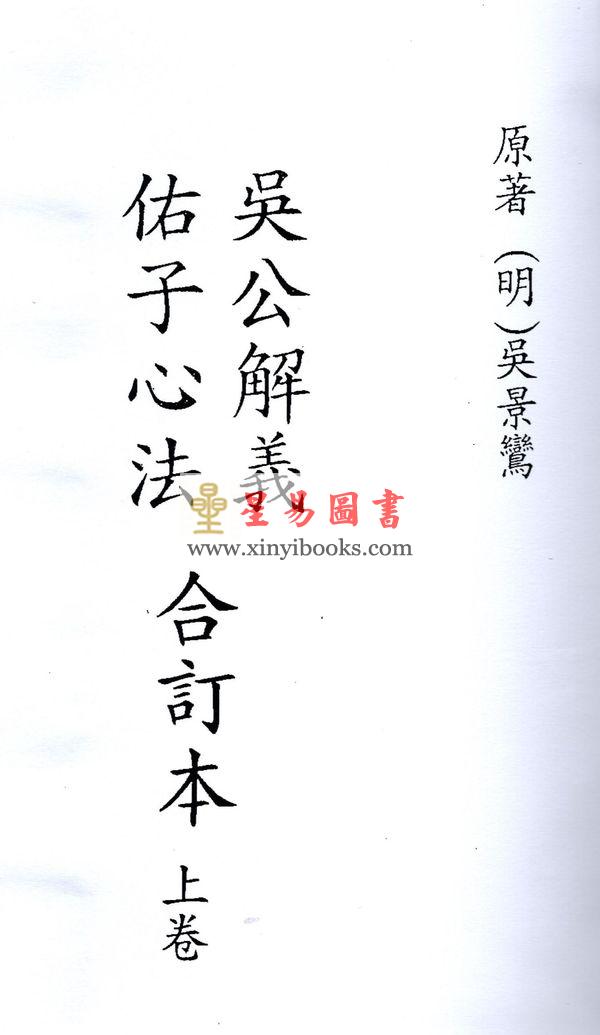 原著（明）吳景鸞
吳公解義
佑子心法
合訂本
上卷
星易圖書
www.xinyibooks.com